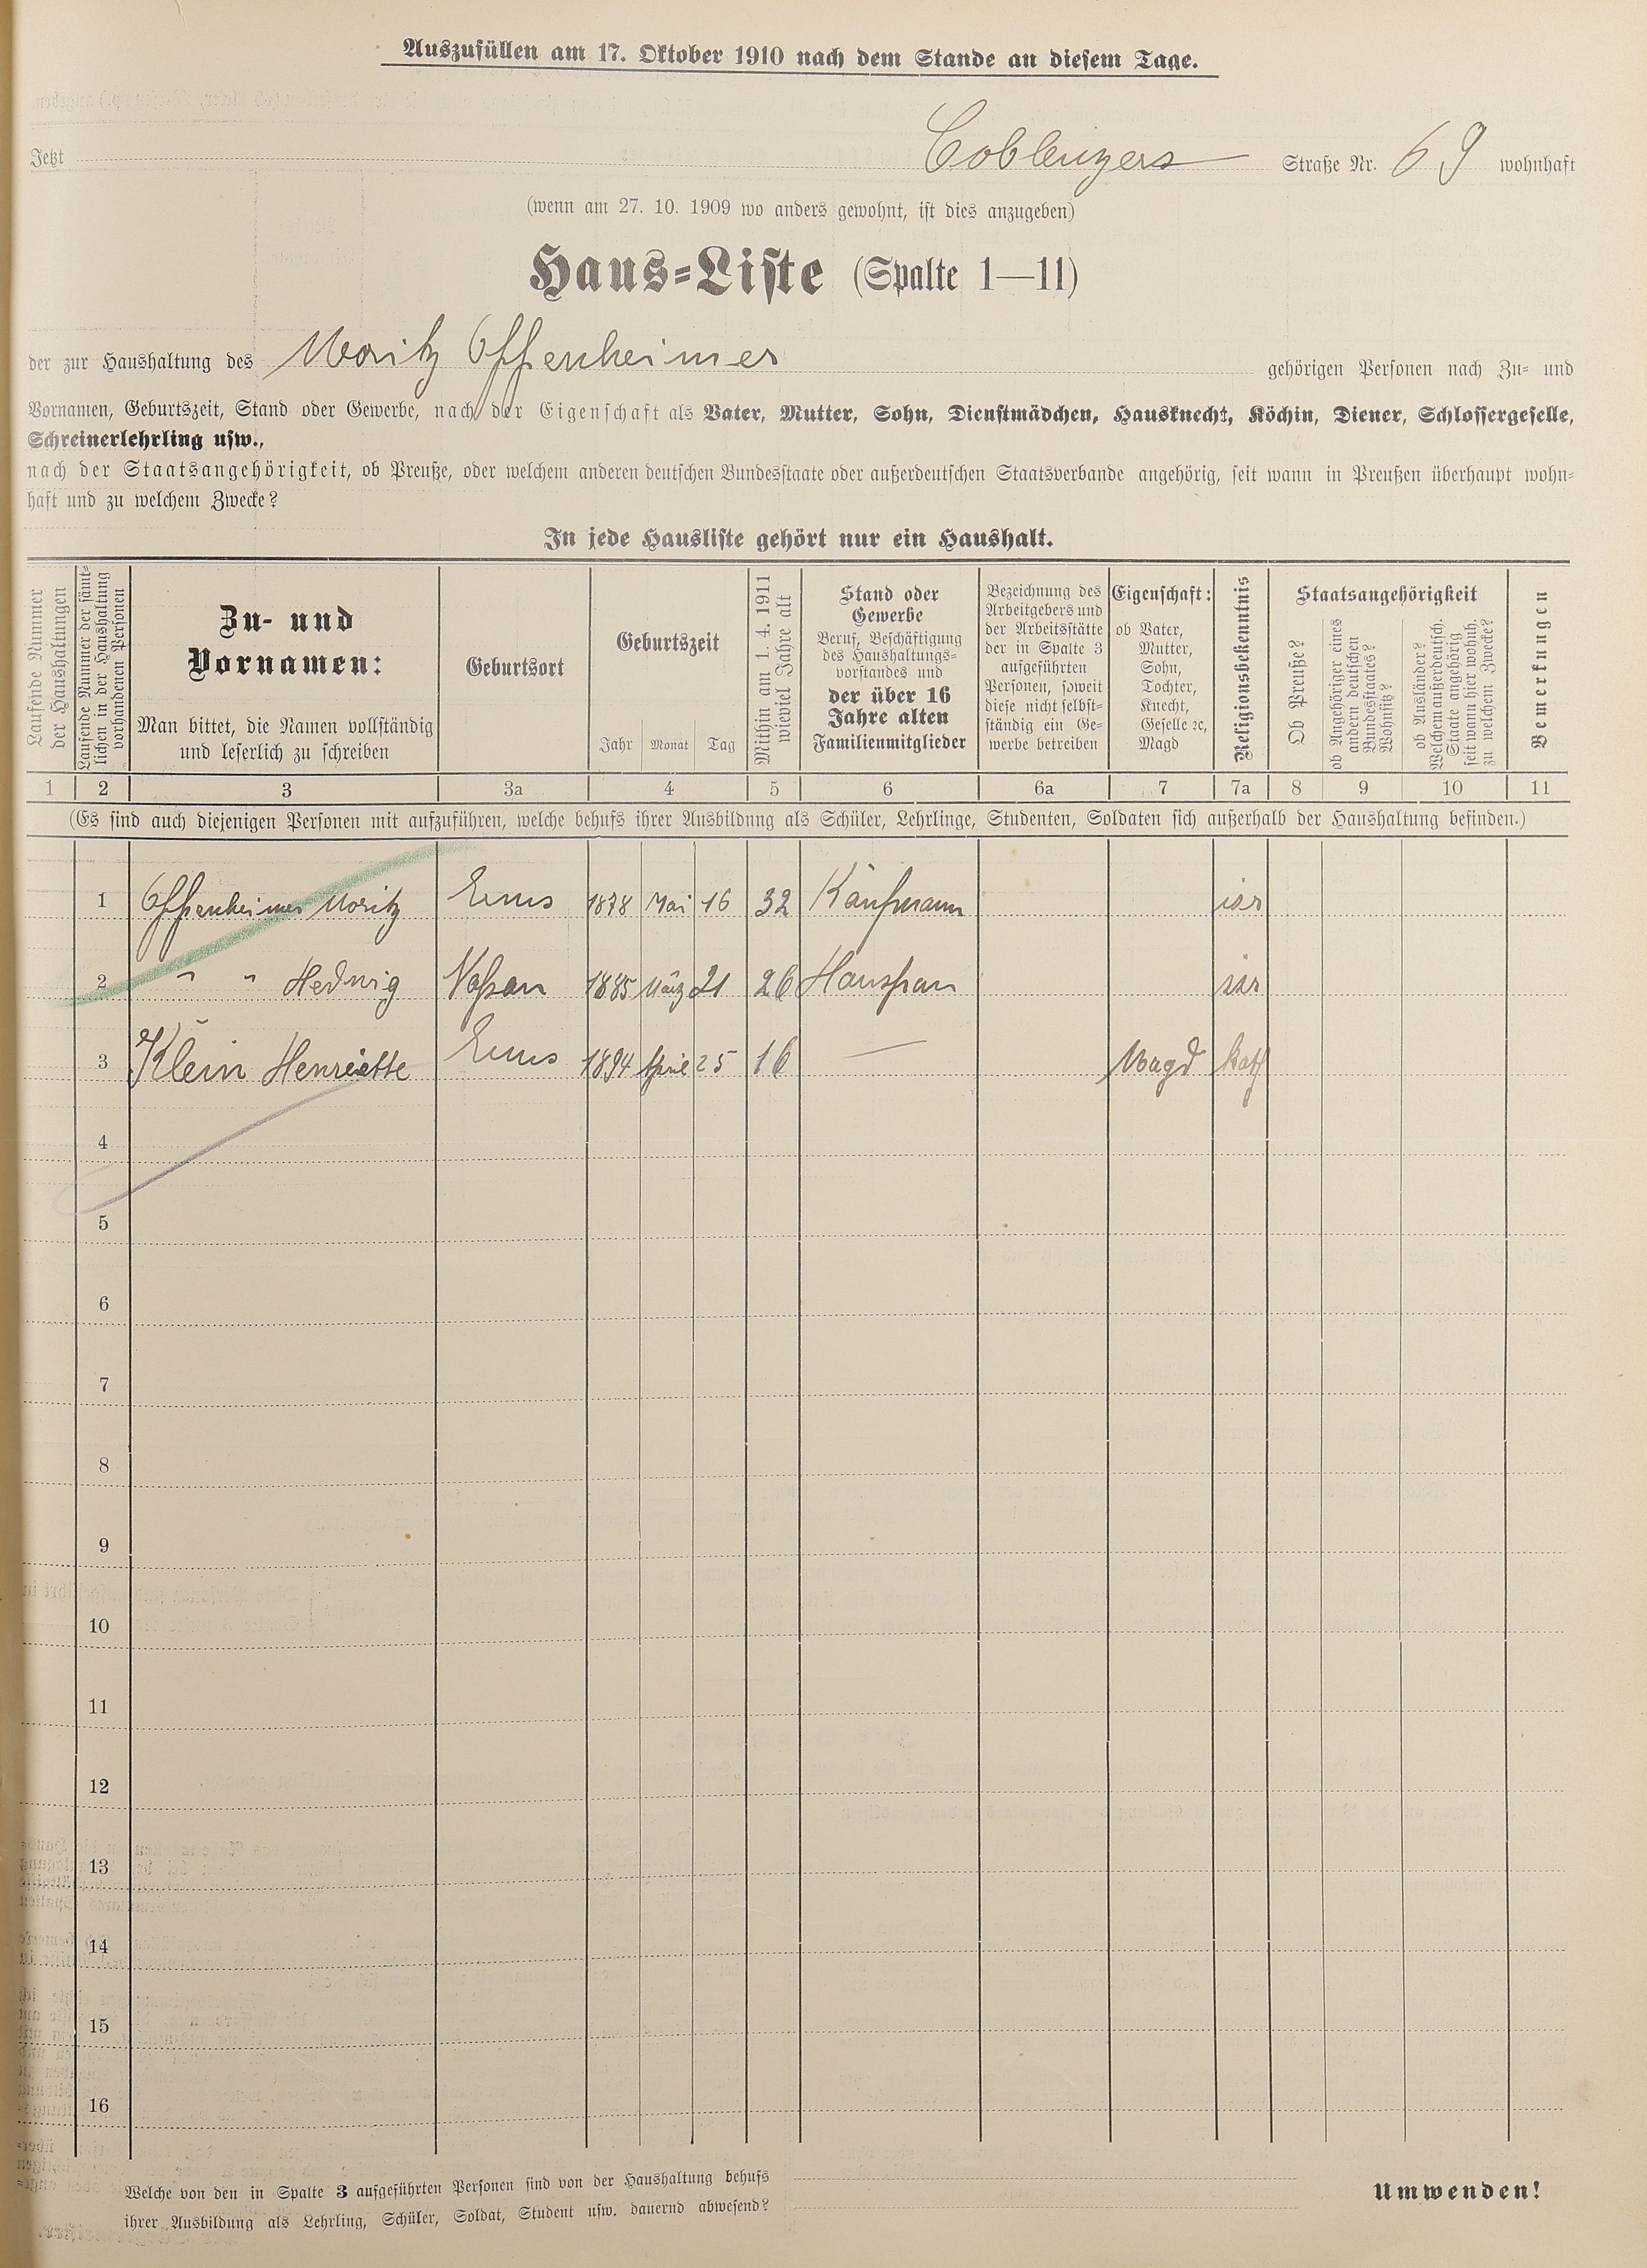 Auszufüllen am 17. Oktober 1910 nach dem Stande an diesem Tage.
Jetzt Coblenzers Straße Nr. 69 wohnhaft
(wenn am 27. 10. 1909 wo anders gewohnt, ist dies anzugeben)
Haus-Liste (Spalte 1—11)
der zur Haushaltung des Moritz Offenheimer gehörigen Personen nach Zu- und
Vornamen, Geburtszeit, Stand oder Gewerbe, nach der Eigenschaft als Vater, Mutter, Sohn, Dienstmädchen, Hausknecht, Köchin, Diener, Schlossergeselle,
Schreinerlehrling usw.,
nach der Staatsangehörigkeit, ob Preuße, oder welchem anderen deutschen Bundesstaate oder außerdeutschen Staatsverbande angehörig, seit wann in Preußen überhaupt wohn-
haft und zu welchem Zwecke?
In jede Hausliste gehört nur ein Haushalt.
Laufende Nummer
der Haushaltungen
Laufende Nummer der sämt-
lichen in der Haushaltung
vorhandenen Personen
Zu- und
Vornamen:
Man bittet, die Namen vollständig
und leserlich zu schreiben
Geburtsort
Geburtszeit
Jahr Monat Tag
Mithin am 1. 4. 1911
wieviel Jahre alt
Stand oder
Gewerbe
Beruf, Beschäftigung
des Haushaltungs-
vorstandes und
der über 16
Jahre alten
Familienmitglieder
Bezeichnung des
Arbeitgebers und
der Arbeitsstätte
der in Spalte 3
aufgeführten
Personen, soweit
diese nicht selbst-
ständig ein Ge-
werbe betreiben
Eigenschaft:
ob Vater,
Mutter,
Sohn,
Tochter,
Knecht,
Geselle ꝛc,
Magd
Religionsbekenntnis
Staatsangehörigkeit
Ob Preuße?
ob Angehöriger eines
andern deutschen
Bundesstaates?
Wohnsitz?
ob Ausländer?
Welchem außerdeutsch.
Staate angehörig
seit wann hier wohnh.
zu welchem Zwecke?
Bemerkungen
1 2 3 3a 4 5 6 6a 7 7a 8 9 10 11
(Es sind auch diejenigen Personen mit aufzuführen, welche behufs ihrer Ausbildung als Schüler, Lehrlinge, Studenten, Soldaten sich außerhalb der Haushaltung befinden.)
1 Offenheimer Moritz Ems 1878 Mai 16 32 Kaufmann isr
2 " " Hedwig 1885 März 21 26 Hausfrau isr
3 Klein Henriette Ems 1894 April 25 16 — Magd kath
4
5
6
7
8
9
10
11
12
13
14
15
16
Welche von den in Spalte 3 aufgeführten Personen sind von der Haushaltung behufs
ihrer Ausbildung als Lehrling, Schüler, Soldat, Student usw. dauernd abwesend?
Umwenden!